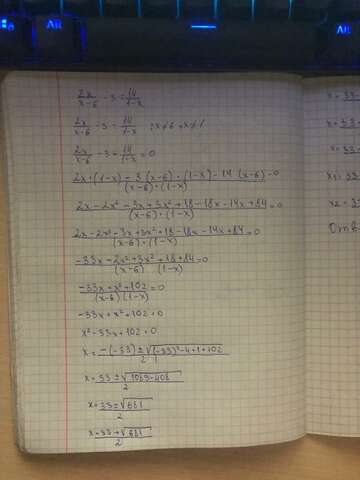 2x/(x-6) - 3 = 14/(1-x)
2x/(x-6) - 3 = 14/(1-x) ; x≠6, x≠1
2x/(x-6) - 3 - 14/(1-x) = 0
(2x·(1-x) - 3(x-6)·(1-x) - 14(x-6))/((x-6)·(1-x)) = 0
(2x-2x²-3x+3x²+18-18x-14x+84)/((x-6)·(1-x)) = 0
(2x-2x²-3x+3x²+18-18x-14x+84)/((x-6)·(1-x)) = 0
(-33x-2x²+3x²+18+84)/((x-6)(1-x)) = 0
(-33x+x²+102)/((x-6)(1-x)) = 0
-33x+x²+102=0
x²-33x+102=0
x = (-(-33)±√((-33)²-4·1·102))/(2·1)
x = (33±√(1089-408))/2
x = (33±√681)/2
x = (33+√681)/2
x = 33-
x = 33
x = 33
x1 = 33
x2 = 3
Отв